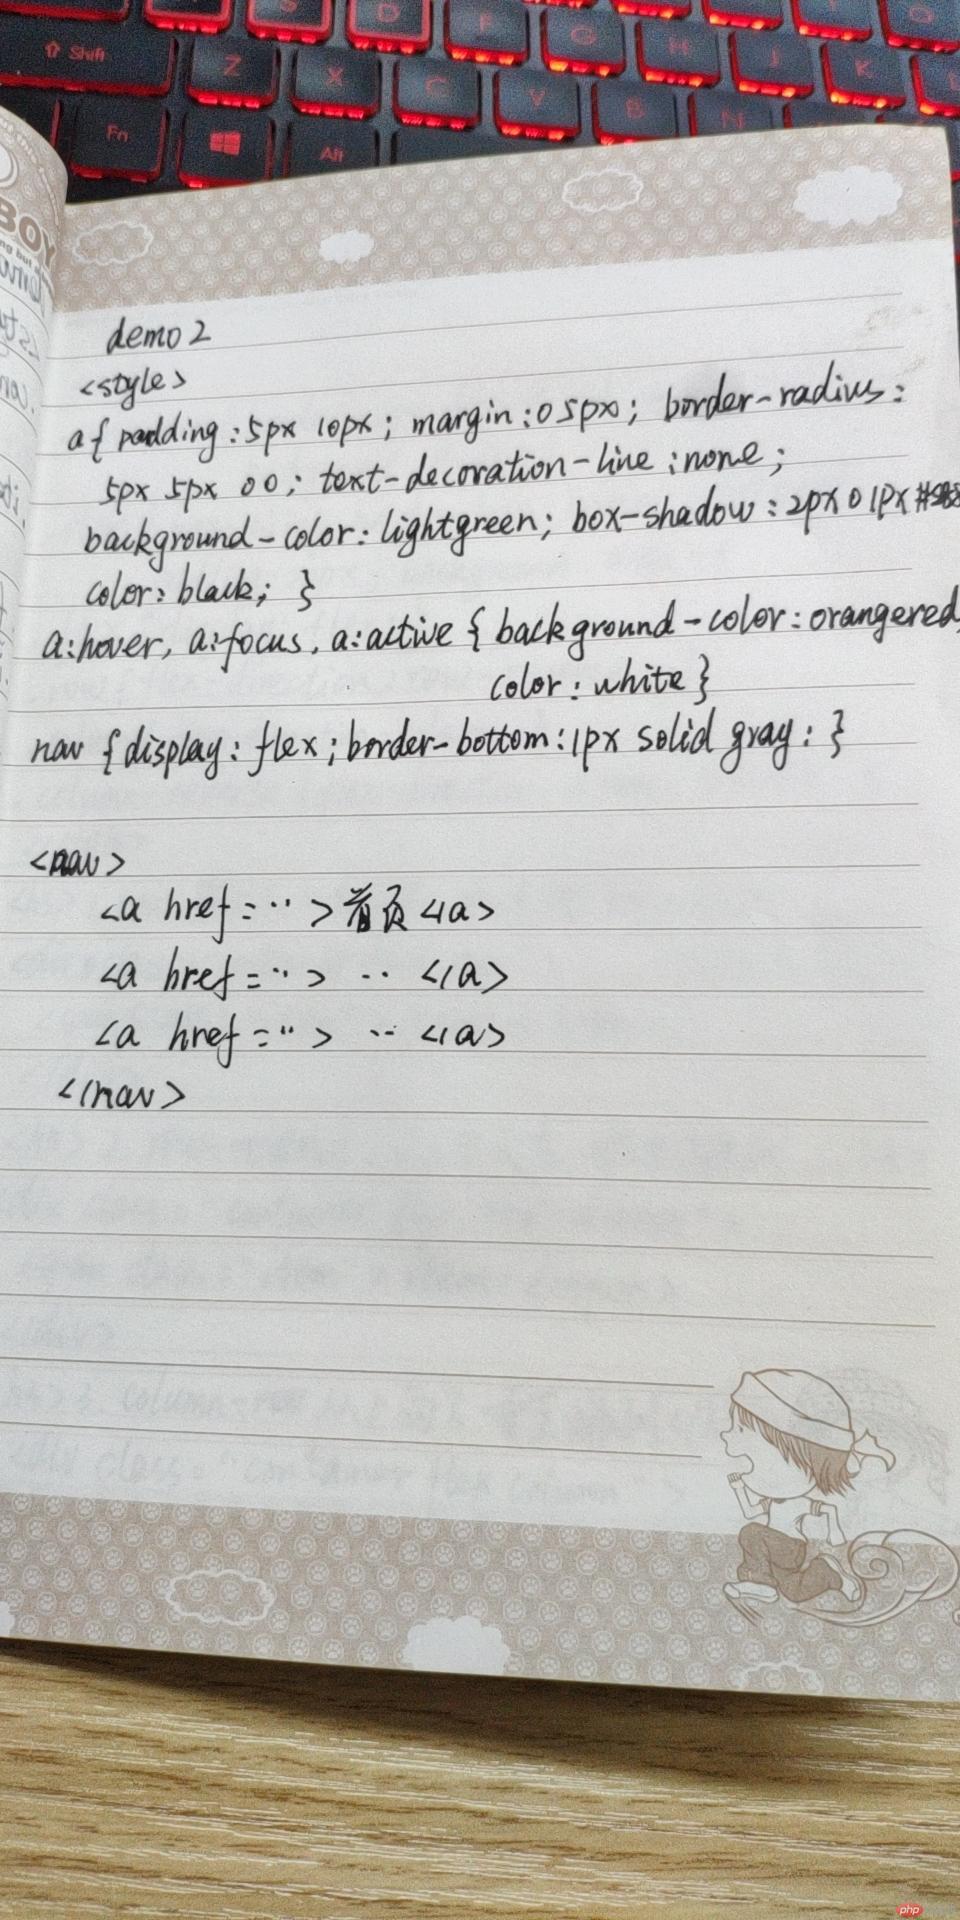 Shift Z X C V B N
D F G H J K
Fn Alt
BOY
demo 2
<style>
a{ padding:5px 10px; margin:0 5px; border-radius:
5px 5px 0 0; text-decoration-line:none;
background-color: lightgreen; box-shadow: 2px 0 1px
color: black; }
a:hover, a:focus, a:active { background-color: orangered;
color: white }
nav {display: flex; border-bottom: 1px solid gray: }
<nav>
<a href=".." >首页</a>
<a href=".." > .. </a>
<a href=".." > .. </a>
</nav>
php